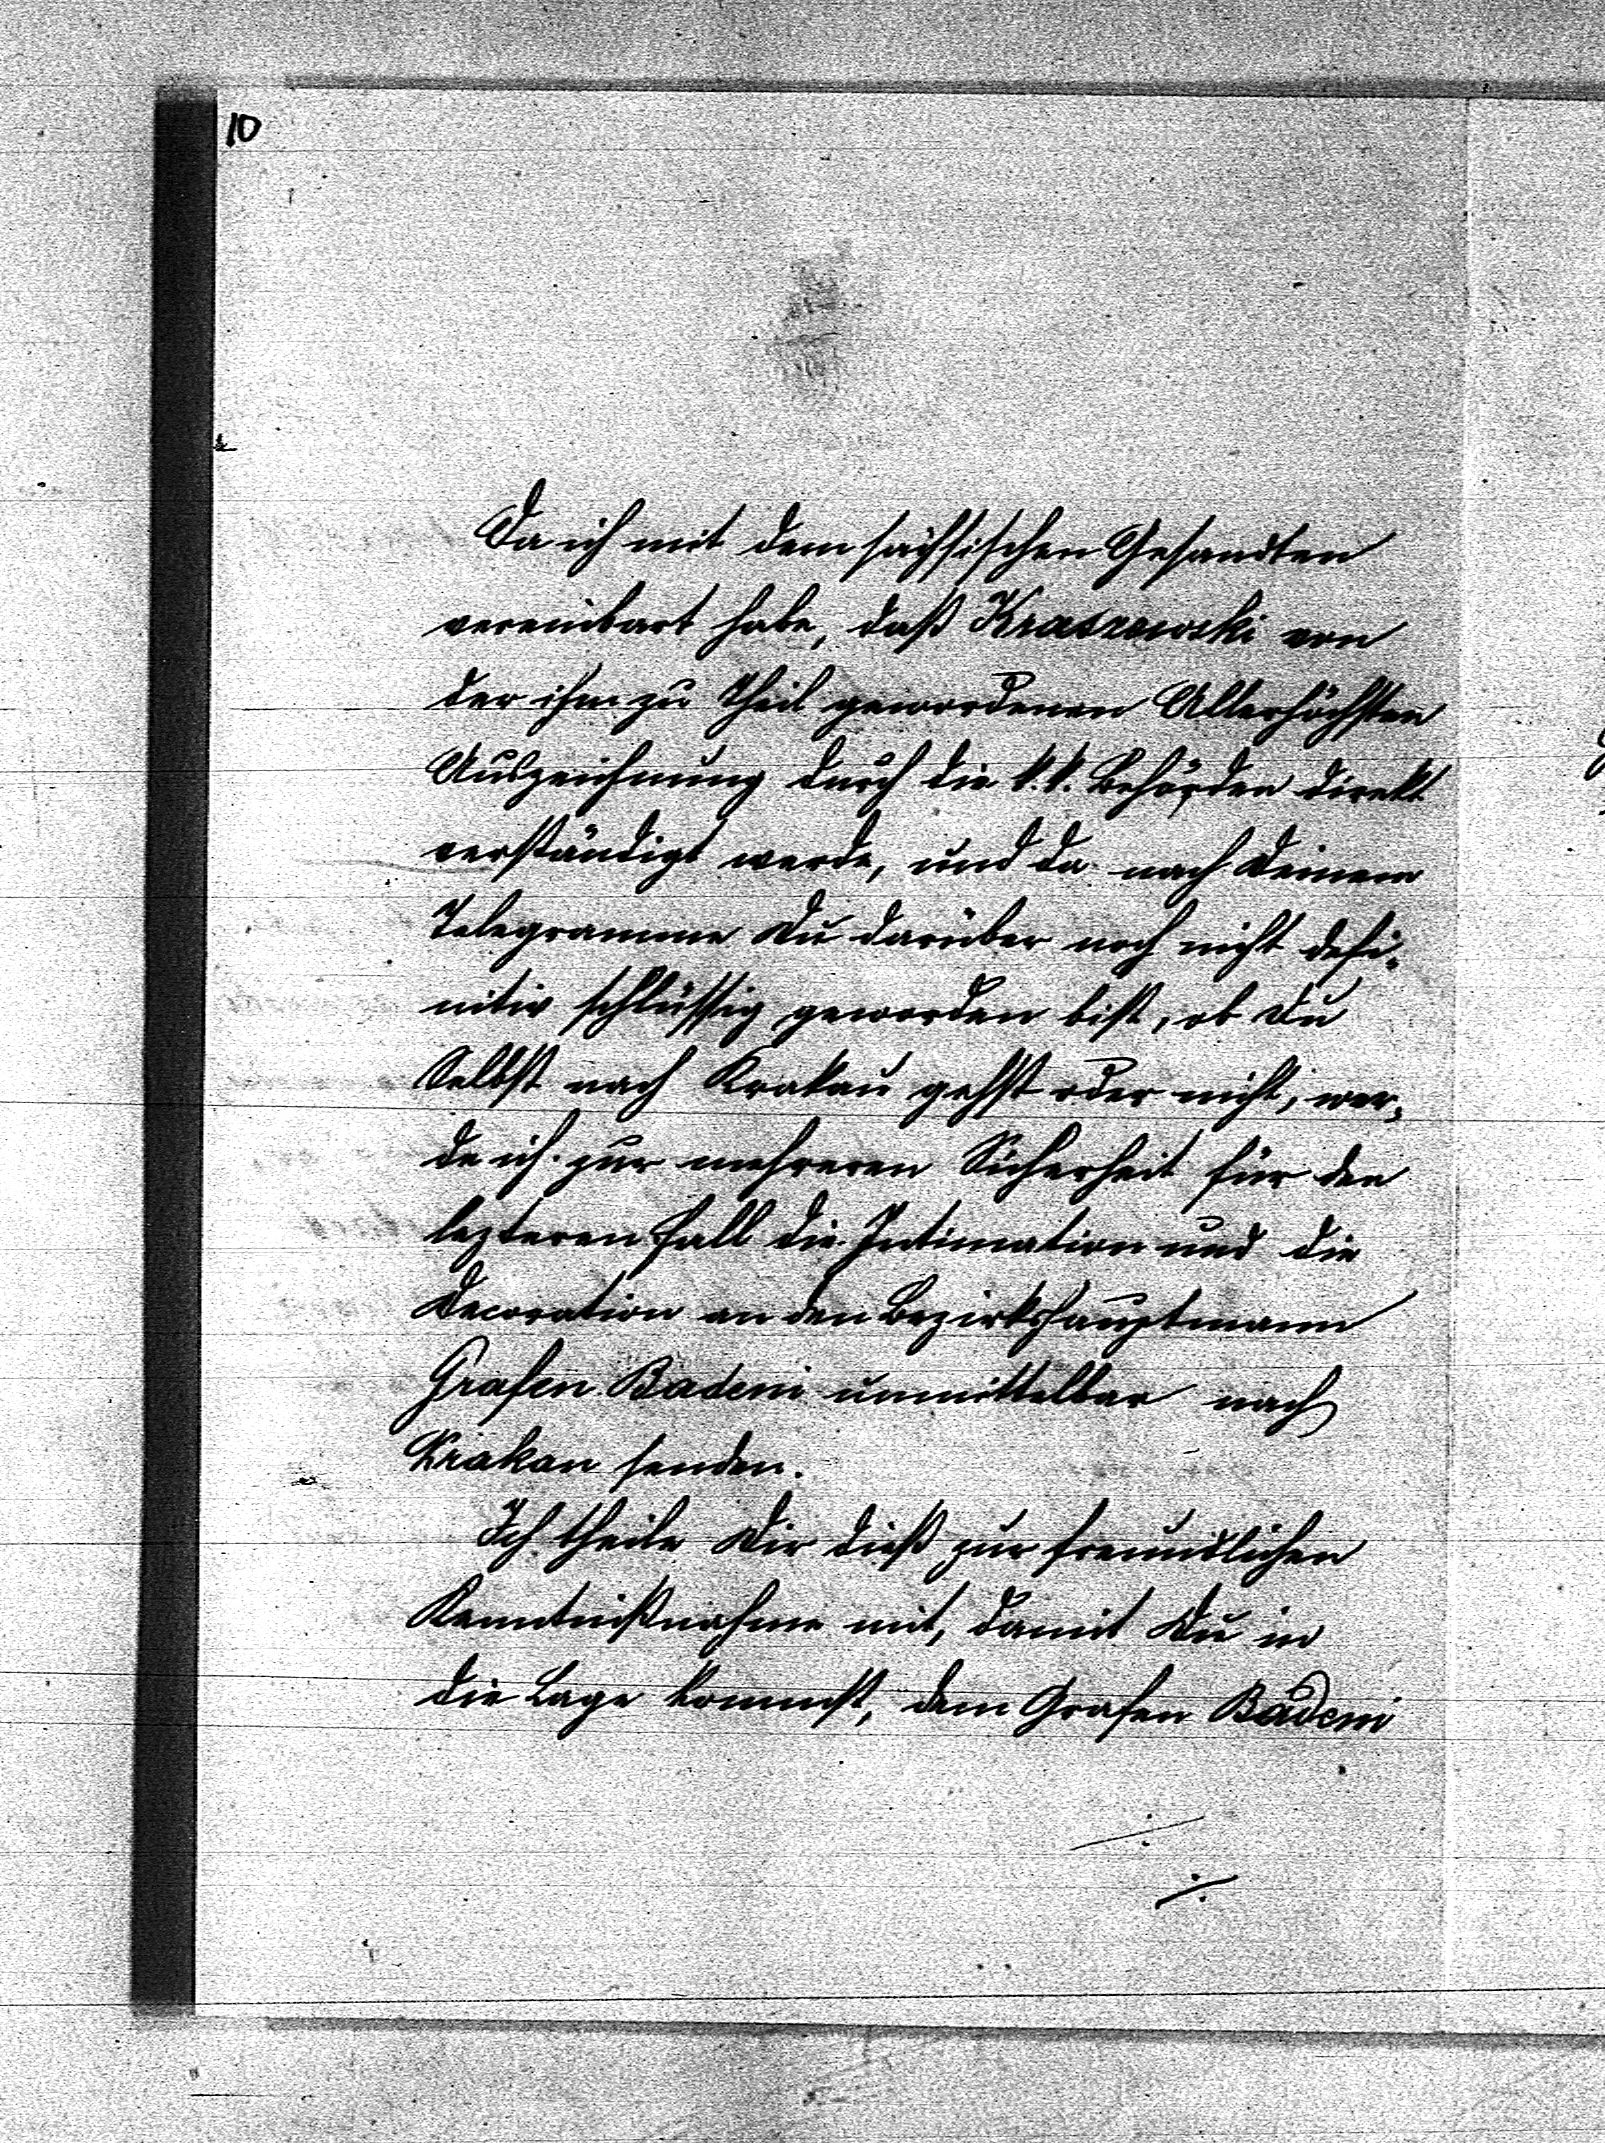 10
Da ich mit dem sächsischen Gesandten
vereinbart habe, daß Kraszewski von
der ihm zu Theil gewordenen Allerhöchsten
Auszeichnung durch die k.k. Behörden direkt
verständigt werde, und da nach Deinem
Telegramme Du darüber noch nicht defi-
nitiv schlüssig geworden bist, ob Du
Selbst nach Krakau gehst oder nicht, wer-
de ich zur mehreren Sicherheit für den
lezteren Fall die Intimation und die
Decoration an den Bezirkshauptmann
Grafen Badeni unmittelbar nach
Krakau senden.
Ich theile Dir dieß zur freundlichen
Kenntnißnahme mit, damit Du in
die Lage kommst, dem Grafen Badeni